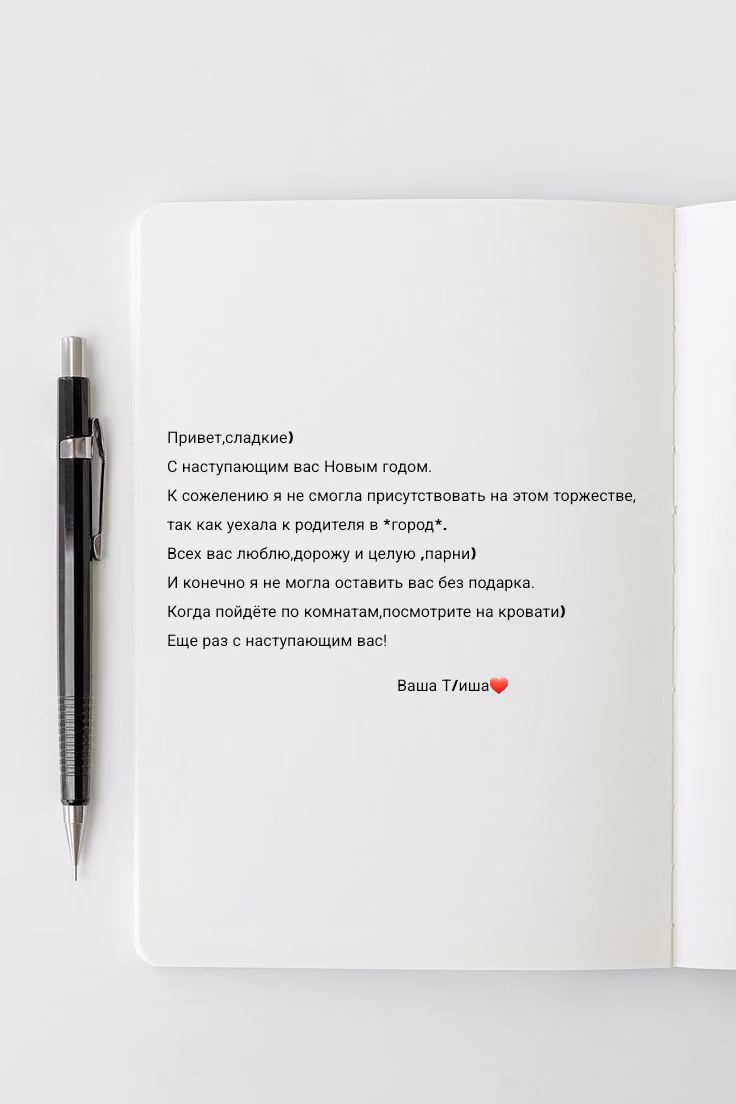 Привет,сладкие)
С наступающим вас Новым годом.
К сожелению я не смогла присутствовать на этом торжестве,
так как уехала к родителя в *город*.
Всех вас люблю,дорожу и целую ,парни)
И конечно я не могла оставить вас без подарка.
Когда пойдёте по комнатам,посмотрите на кровати)
Еще раз с наступающим вас!
Ваша Т/иша❤️